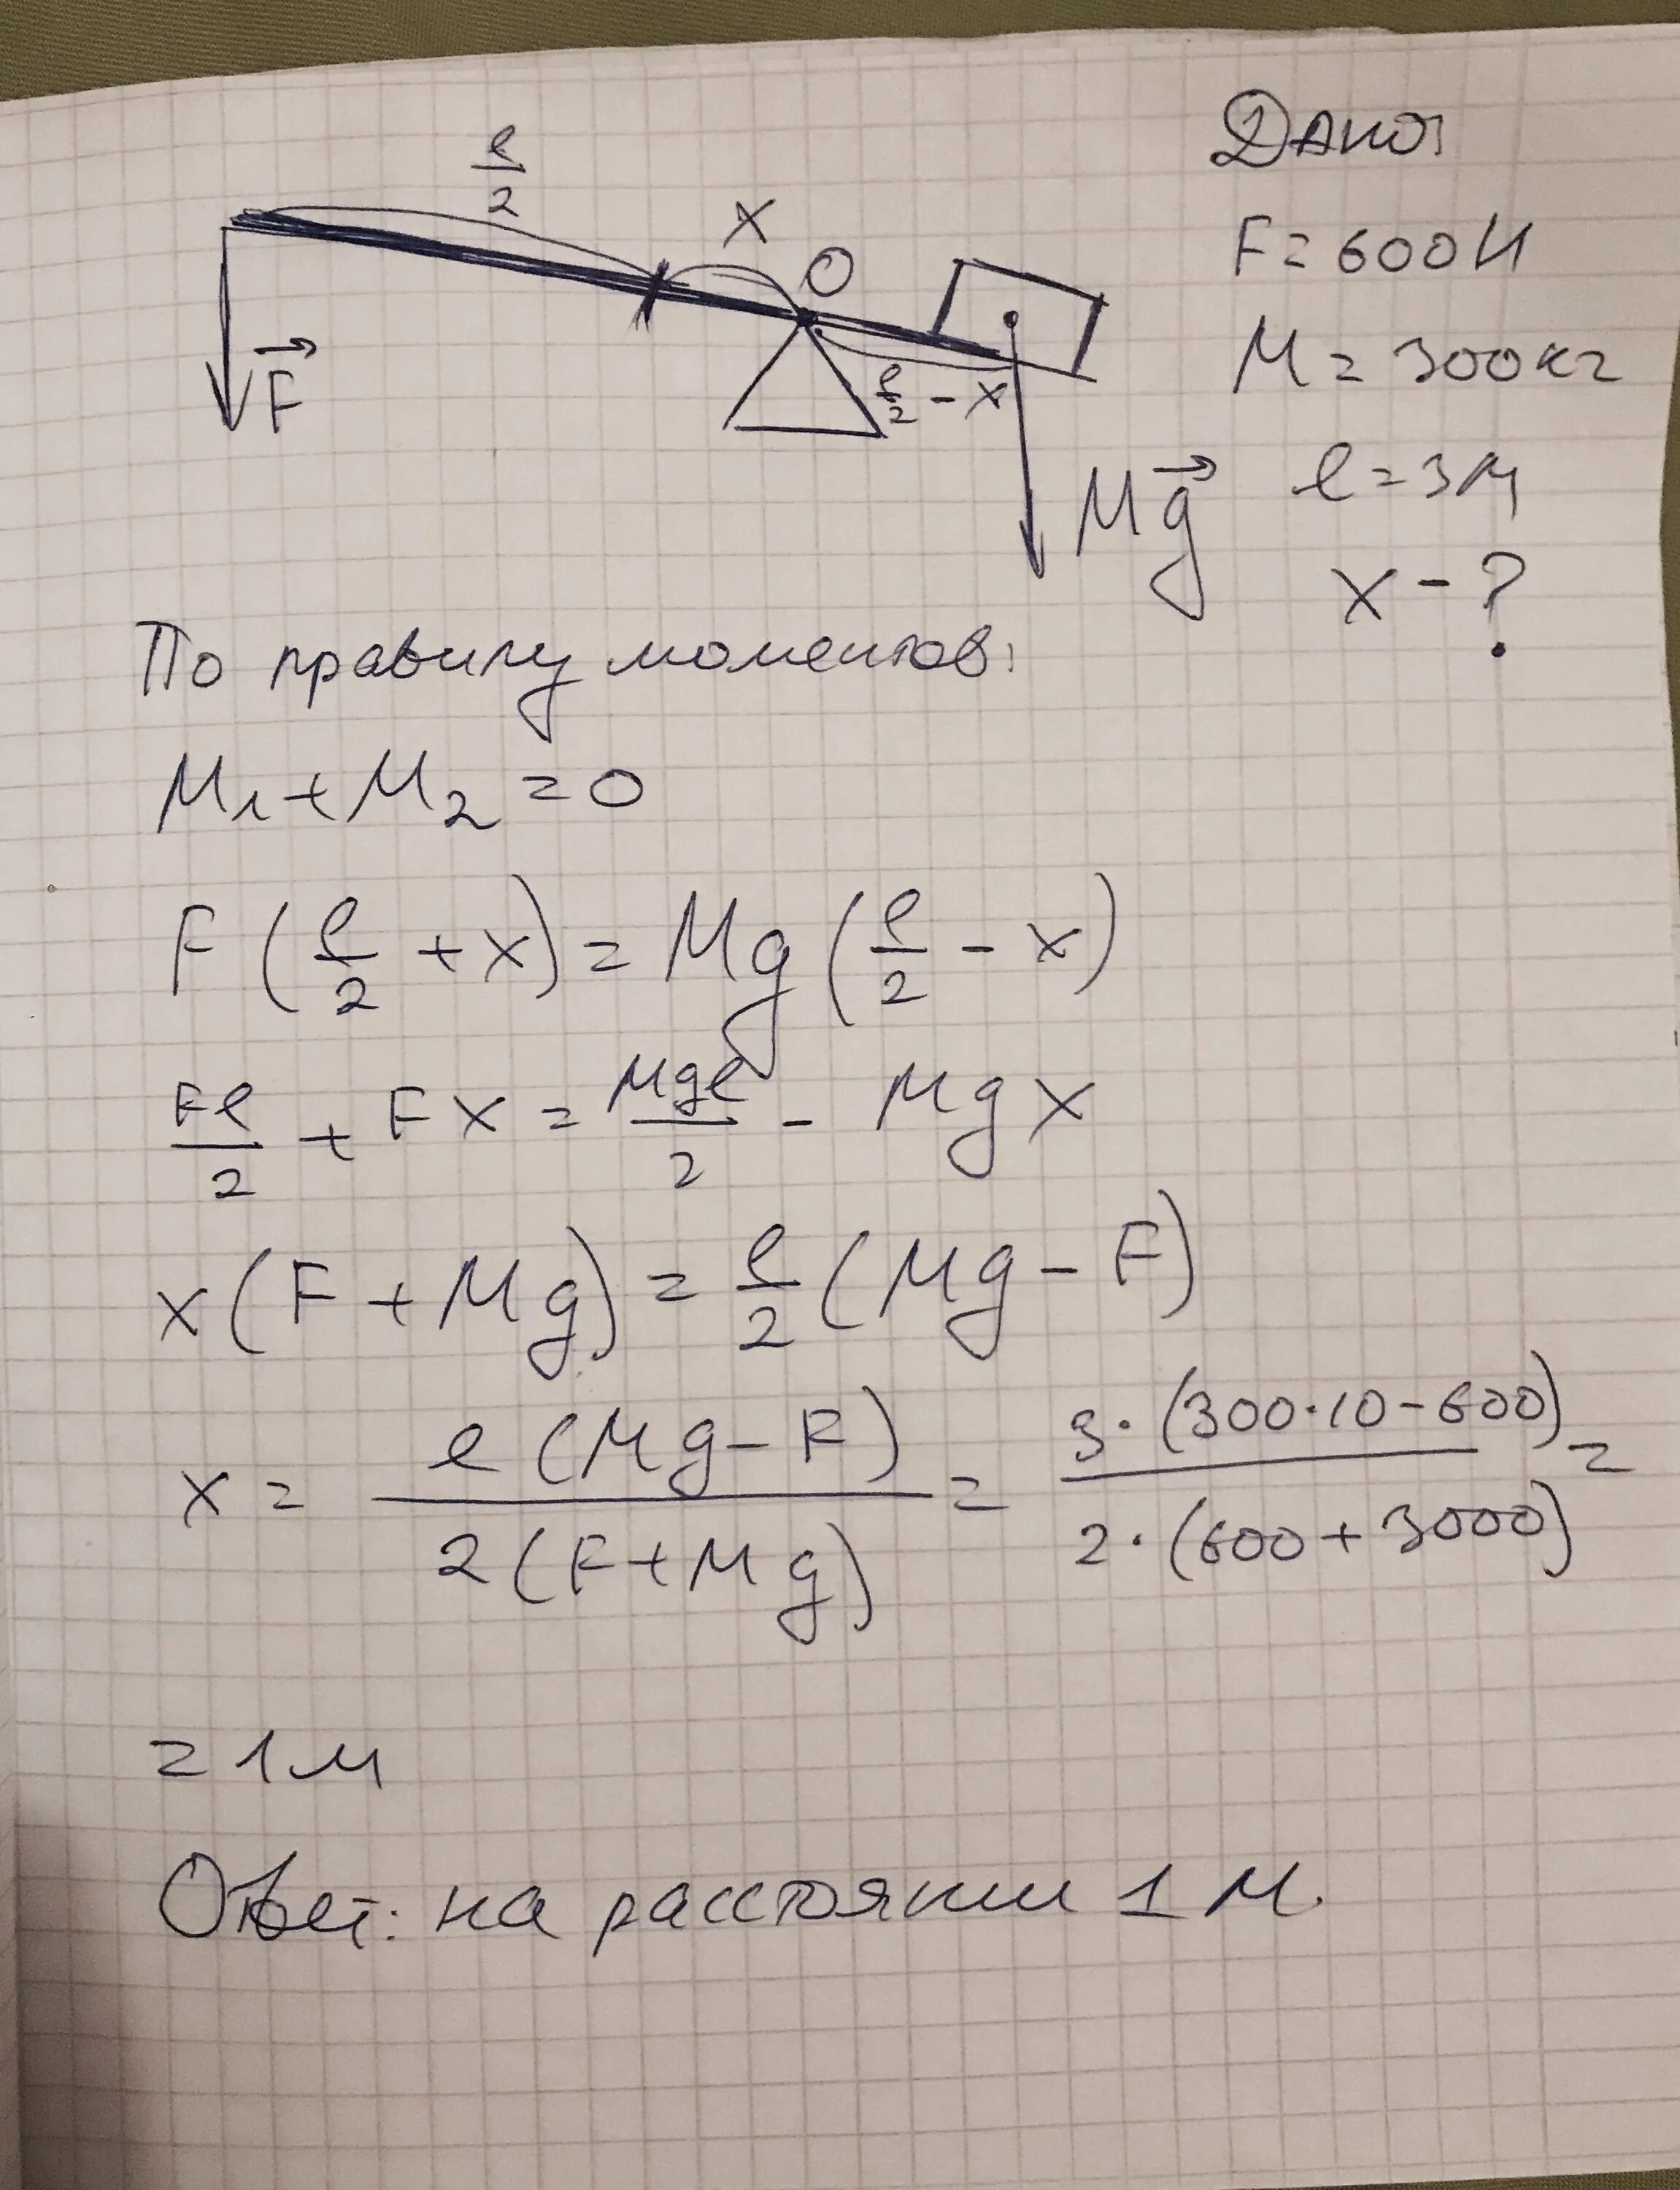 Дано:
F = 600 Н
M = 300 кг
l = 3 м
x - ?
l/2
x
O
F⃗
l/2 - x
Mg⃗
По правилу моментов:
M₁ + M₂ = 0
F (l/2 + x) = Mg (l/2 - x)
Fl/2 + Fx = Mgl/2 - Mgx
x (F + Mg) = l/2 (Mg - F)
x = l (Mg - F) / 2 (F + Mg) = 3 · (300 · 10 - 600) / 2 · (600 + 3000) =
= 1 м
Ответ: на расстоянии 1 м.